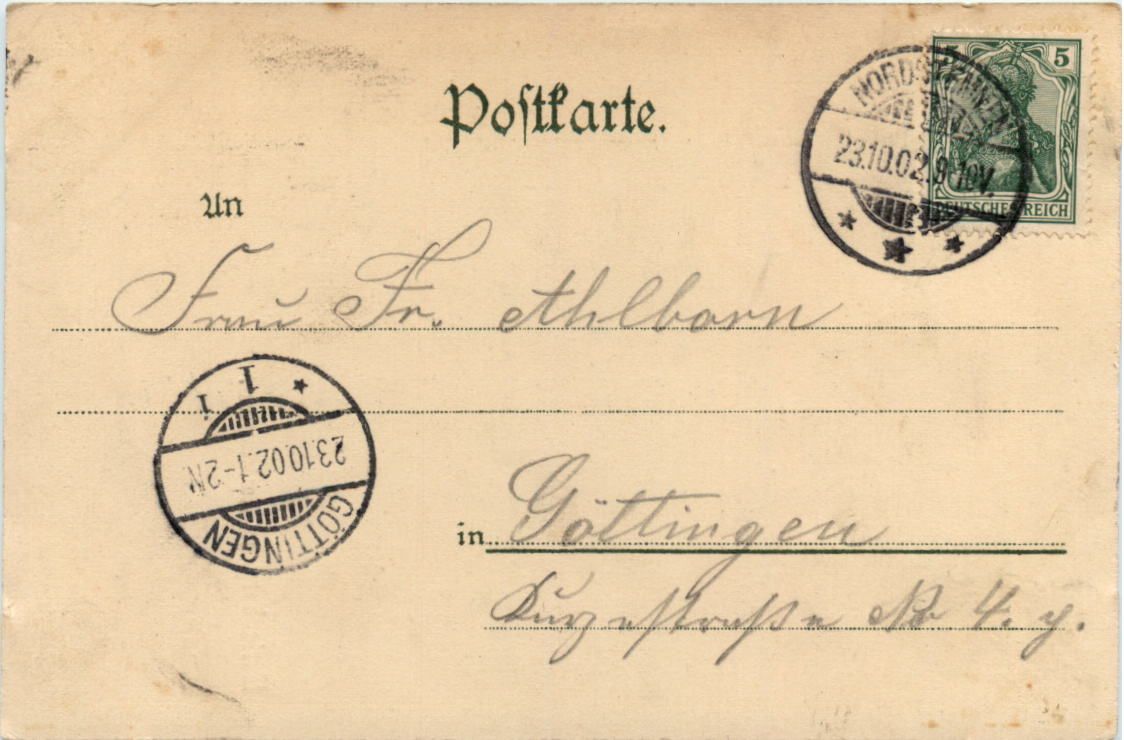 Postkarte.
5 5
NORDSTEMMEN
23.10.02.9-10V.
DEUTSCHES REICH
An
Frau Fr. Ahlborn
1
1
23.10.02.1-2N.
GÖTTINGEN
in Göttingen
Kurzestraße No 4.